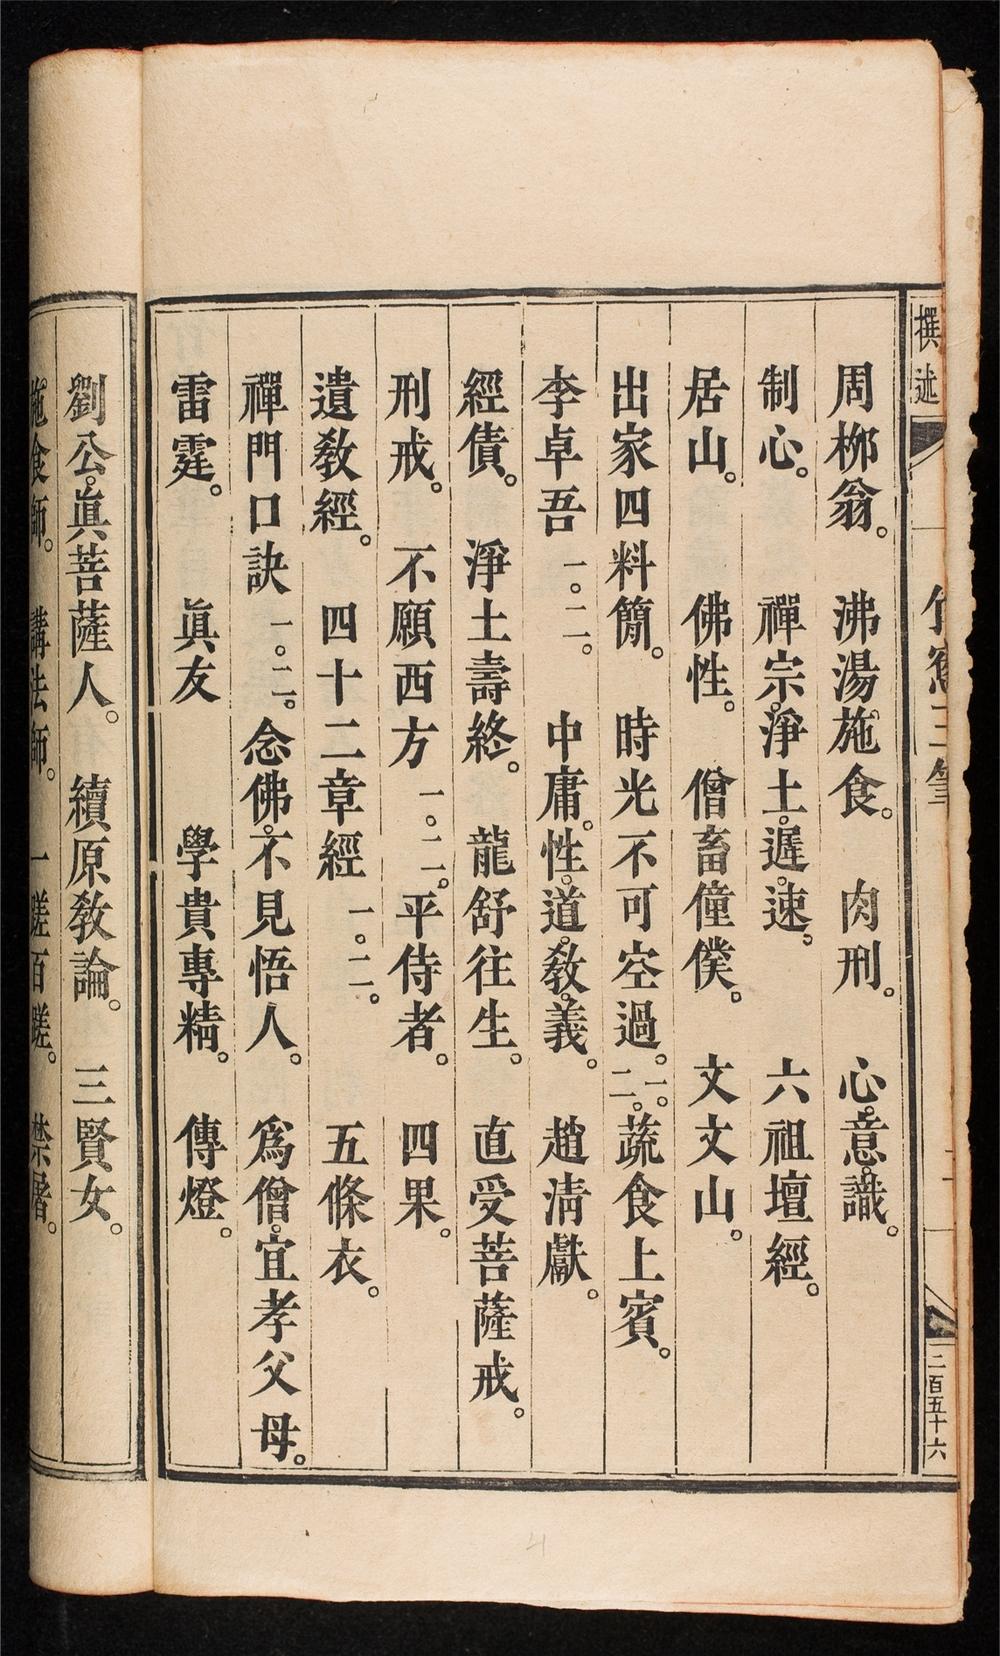 撰述
三筆
二百五十六
周柳翁。沸湯施食。肉刑。心。意。識。
制心。禪宗。淨土。遲。速。六祖壇經。
居山。佛性。僧畜僮僕。文文山。
出家四料簡。時光不可空過。一。二。蔬食上賓。
李卓吾一。二。中庸。性。道。敎。義。趙淸獻。
經債。淨土壽終。龍舒往生。直受菩薩戒。
刑戒。不願西方一。二。平侍者。四果。
遺敎經。四十二章經一。二。五條衣。
禪門口訣一。二。念佛。不見悟人。爲僧。宜孝父母。
雷霆。眞友 學貴專精。傳燈。
劉公。眞菩薩人。續原敎論。三賢女。
施食師。講法師。一蹉百蹉。禁屠。
4